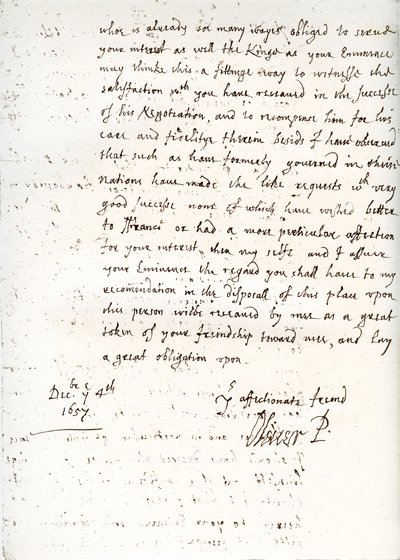 who is already so many wayes obliged to serve
your interest as well the Kings as your Eminence
may thinke this a fittinge way to witnesse the
satisfaction wth you have receaved in the successe
of his Negoteation, and to recompense him for his
care and fidelitye therein besids I have observed
that such as have formerly governed in theise
nations have made the like requests wth very
good successe none of which have wished better
to ffrance or had a more perticular affection
for your interest then my selfe and I assure
your Eminence the regard you shall have to my
recomendation in the disposall of this place upon
this person wilbe receaved by mee as a great
token of your friendship toward mee, and lay
a great obligation upon
Dec.bre ye 4th
1657.
Yr affectionate freind
Oliver P.